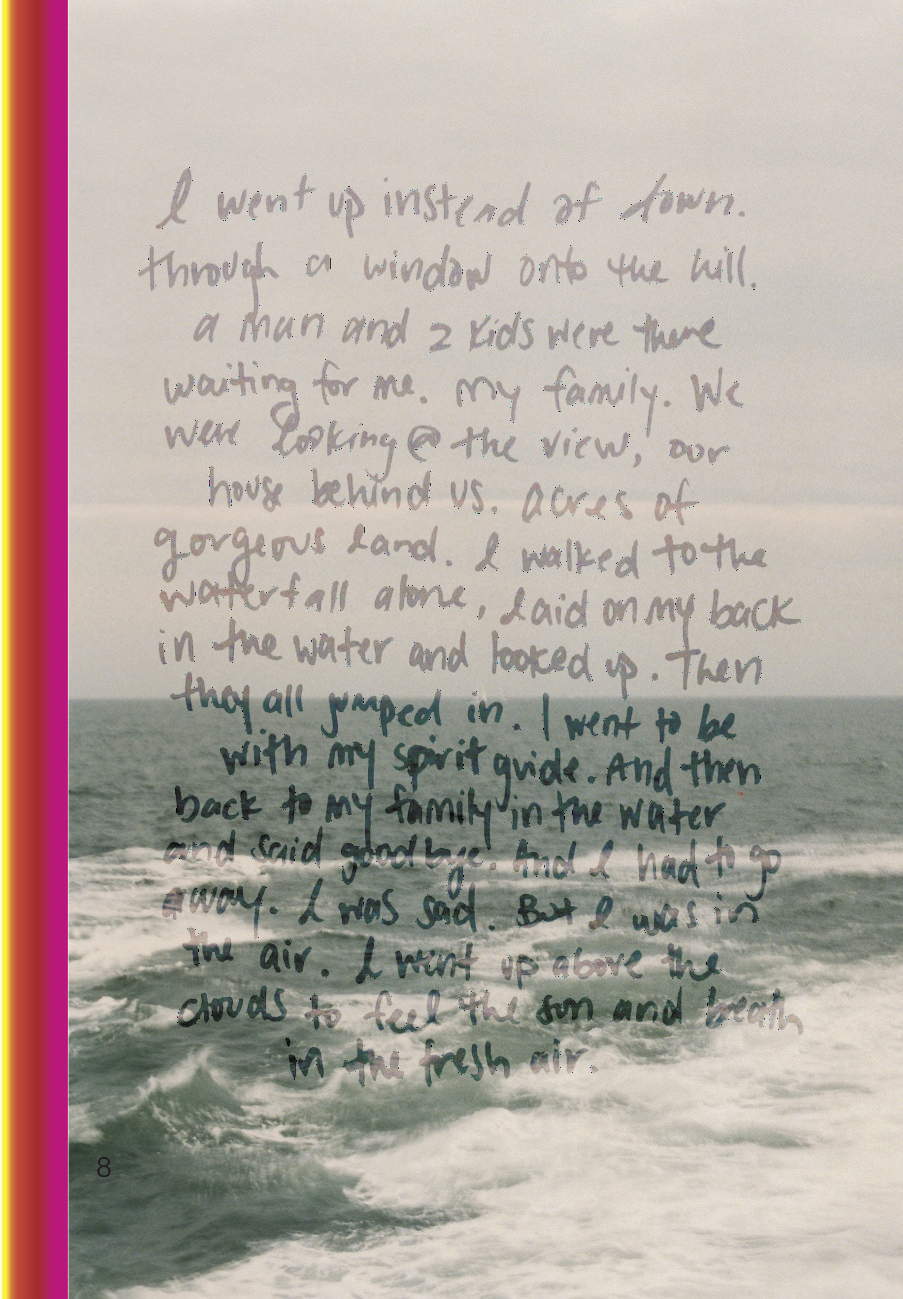 I went up instead of down.
through a window onto the hill.
a man and 2 kids were there
waiting for me. My family. We
were looking @ the view, our
house behind us. Acres of
gorgeous land. I walked to the
waterfall alone, laid on my back
in the water and looked up. Then
they all jumped in. I went to be
with my spirit guide. And then
back to my family in the water
and said goodbye. And I had to go
away. I was sad. But I was in
the air. I went up above the
clouds to feel the sun and breath
in the fresh air.
8